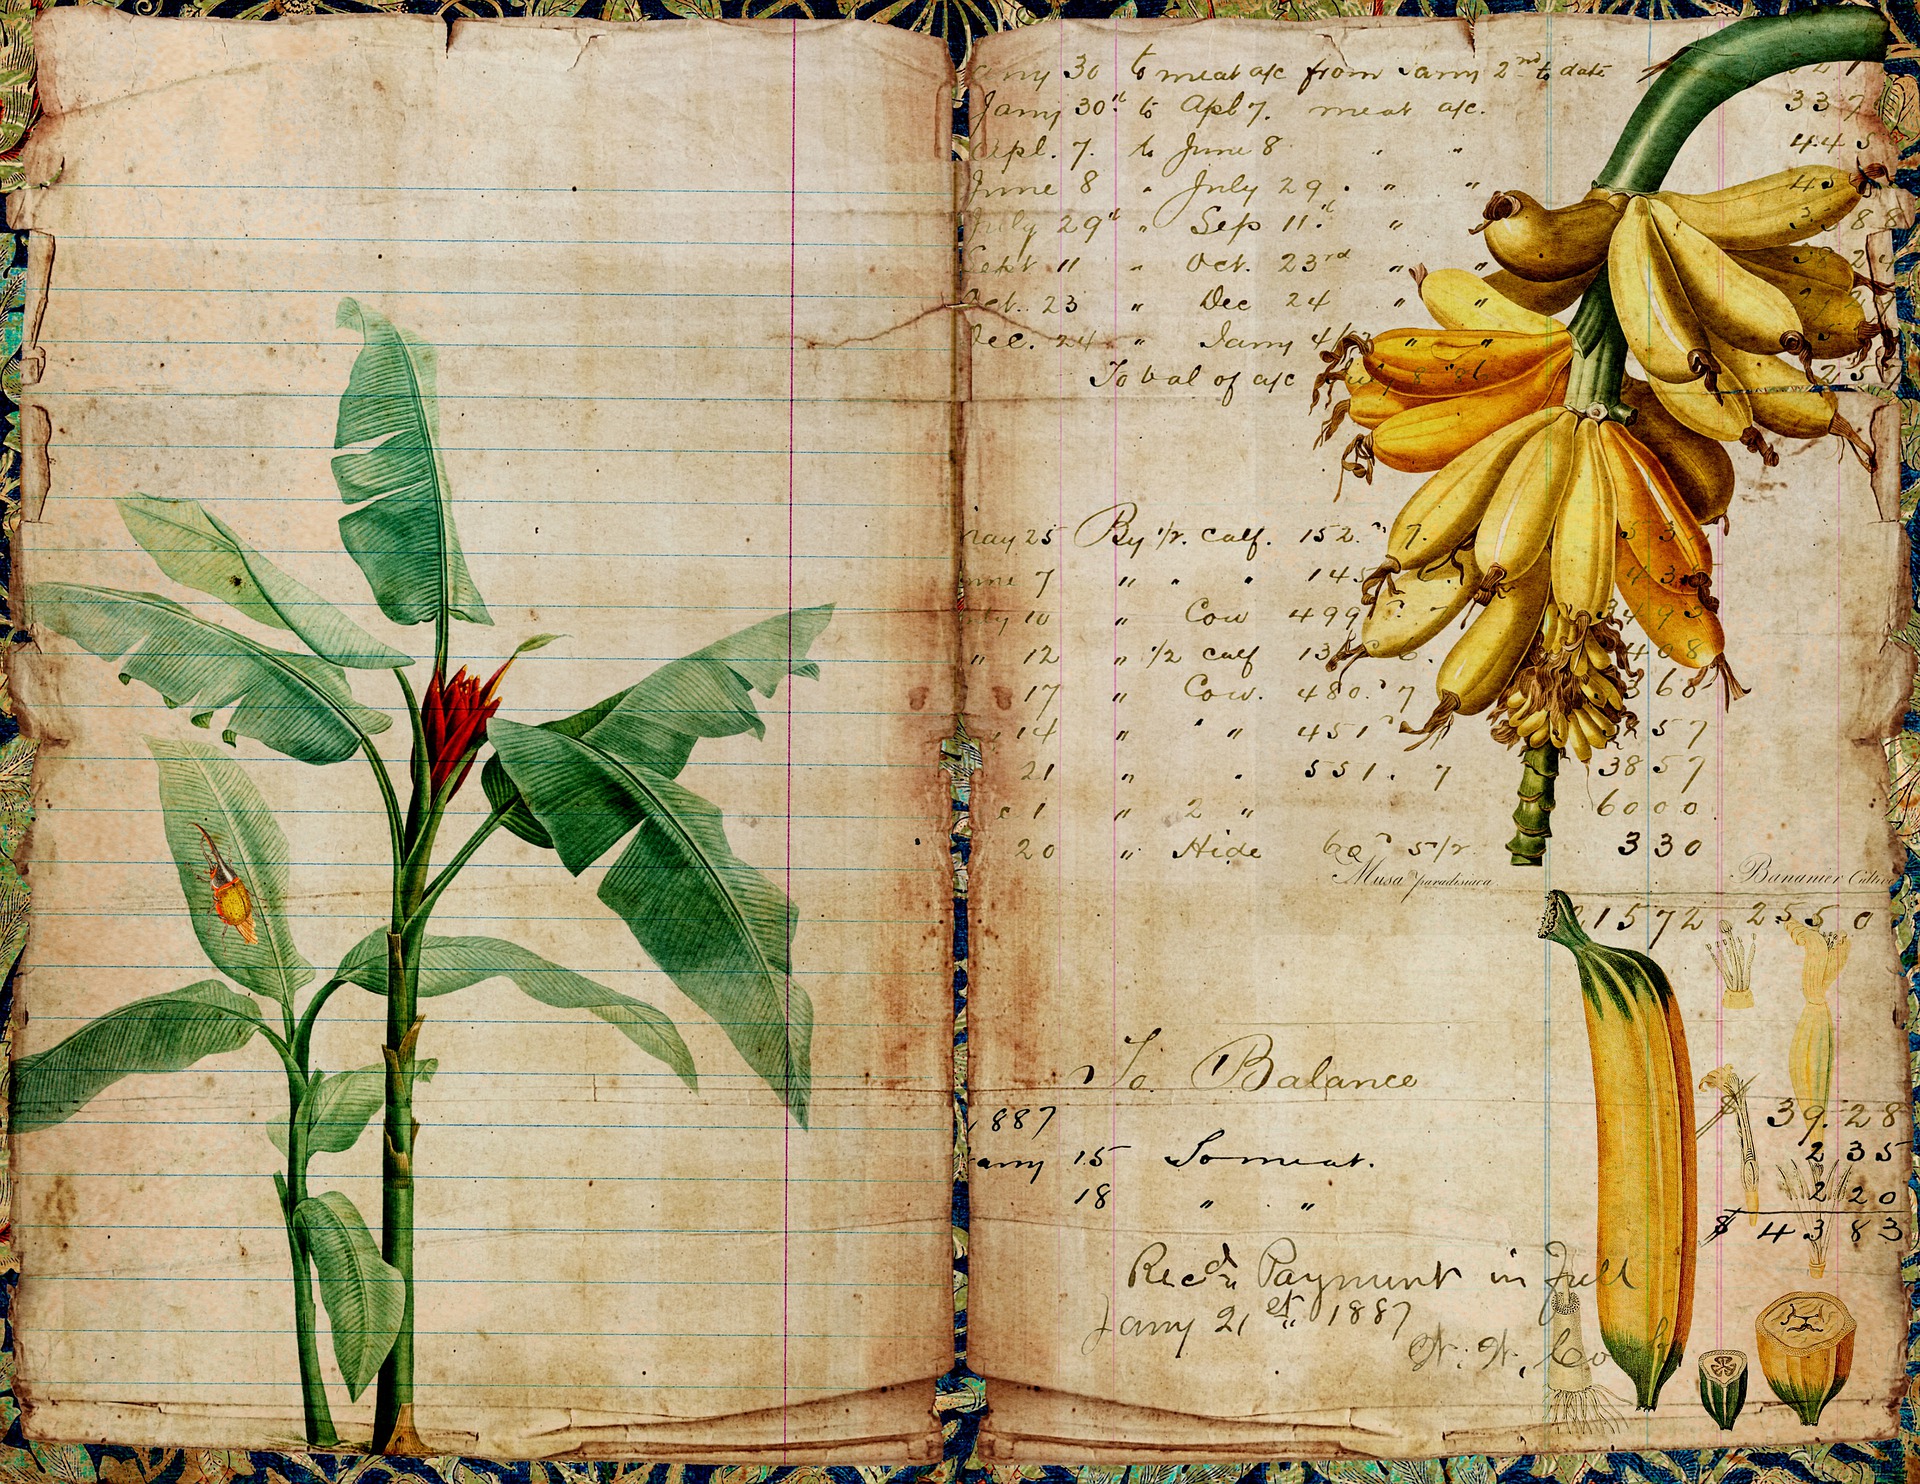 30 to meat a/c from Jany 2nd to date
Jany 30th to Apl 7. meat a/c. 337
Apl. 7. to June 8 " " 445
June 8 " July 29 . " " 45
July 29th " Sep 11th " 388
Sept 11 " Oct. 23rd " " 38 24
Oct. 23 " Dec 24 " "
Dec. 24 " Jany 4/ " "
To bal of a/c July 8 86 257
May 25 By 1/2. calf. 152. 7. 53
June 7 " " " 145 43
July 10 " Cow 499 7 3493
" 12 " 1/2 calf 13 6. 408
17 " Cow. 480. 7 368
14 " " " 451 7 57
21 " " 551. 7 3857
1 " 2 " 6000
20 " Hide 60 5/r. 330
Musa paradisiaca. Bananier Cultivé
21572 2550
To Balance
1887 $ 39.28
Jany 15 To meat. 2 35
18 " " 2 20
$ 43 83
Recd Payment in Full
Jany 21st 1887
W. W. Co